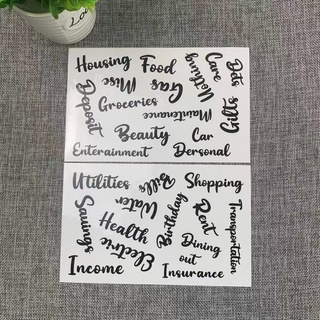 Housing
Food
Care
Pets
Misc
Gas
Clothing
Deposit
Groceries
Maintenance
Gifts
Beauty
Car
Entertainment
Personal
Utilities
Bills
Shopping
Savings
Water
Birthday
Rent
Transportation
Health
Electric
Dining
out
Income
Insurance